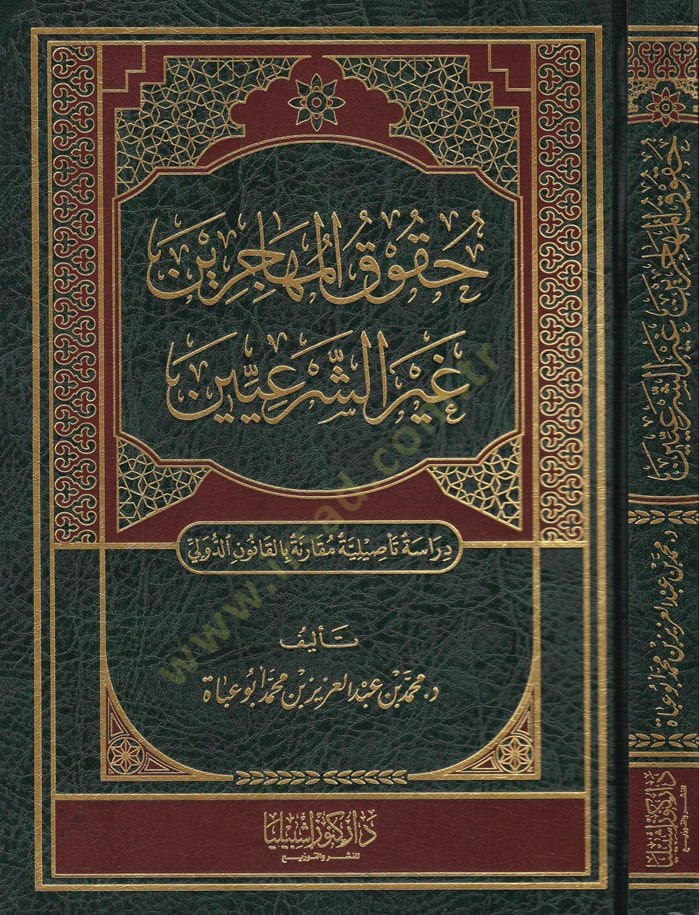 حُقُوقُ المُهَاجِرِينَ
غَيْرِ الشَّرْعِيِّينَ
دِرَاسَةٌ تَأْصِيلِيَّةٌ مُقَارَنَةٌ بِالقَانُونِ الدُّوَلِيِّ
تَأليفُ
د. محمد بن عبد العزيز بن محمد أبو عباة
دار كنوز إشبيليا
للنشر والتوزيع
حقوق المهاجرين غير الشرعيين
د. محمد بن عبد العزيز بن محمد أبو عباة
دار كنوز إشبيليا
للنشر والتوزيع